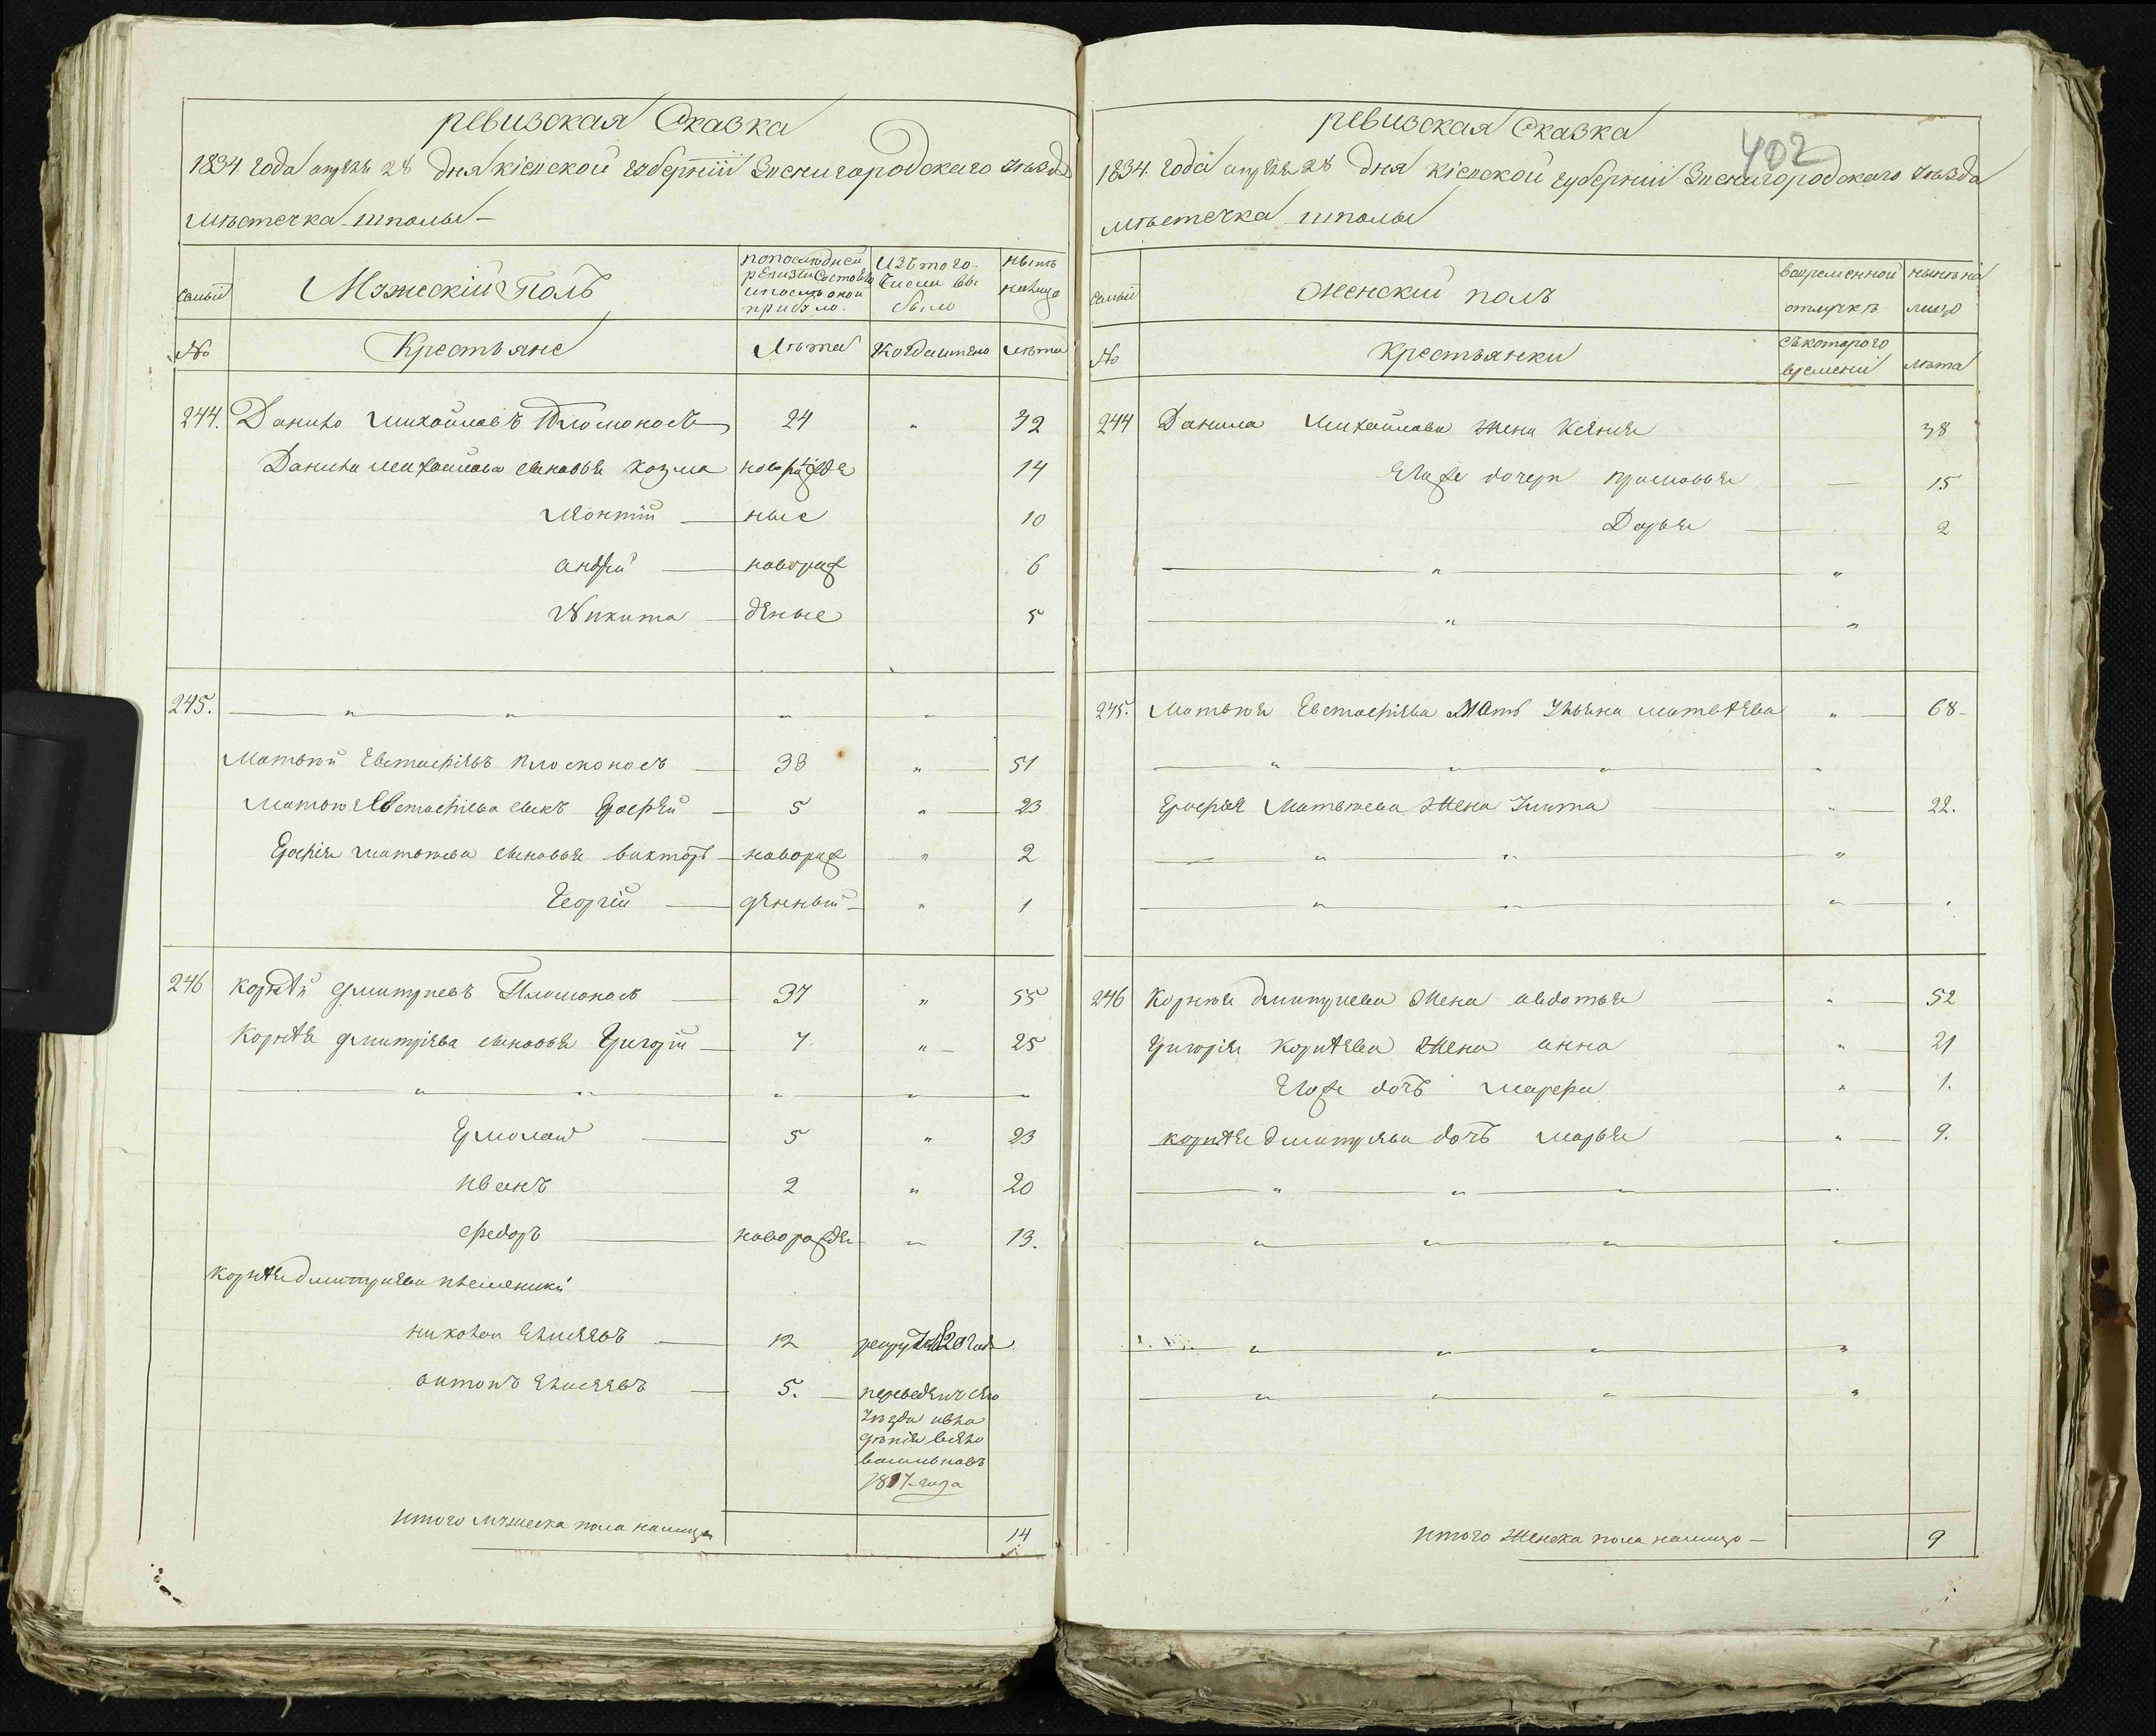 ревизская Сказка
1834. года апреля 28 дня кіевской губерніи Звенигородскаго уезда
местечка шполы -
семьи
Мужескій Полъ
по последней ревизіи состояло и после оной прибыло.
Изъ того числа выбыло
ныне налицо
№
Крестьяне
Лета
Когда имено
лета
244. Данило михайловъ Плосконосъ 24 " 32
Данила михайлова сыновья козма новорожде 14
леонтій ные 10
андрей новорож 6
Никита деные 5
245. " " " "
Матвей Евстафіевъ плосконосъ 38 " 51
Матвея Евстафіева сынъ Ерофей 5 " 23
Ерофія матвеева сыновья викторъ новорож " 2
Георгій денный " 1
246 корней дмитриевъ Плосконосъ 37 " 55
Корнея дмитріева сыновья Григорій 7 " 25
" " " " "
Ермолай 5 " 23
иванъ 2 " 20
федоръ новорожде " 13.
корнея дмитриева племеники
николай Елисеевъ 12 1820 года
антонъ Елисеевъ 5. переведенъ сего
уезда овла
денія село
1817 года
итого мужеска пола налицо 14
402
ревизская Сказка
1834. года апреля 28 дня кіевской губерніи Звенигородскаго уезда
местечка шполы
семьи
женский полъ
во временной отлучке
ныне на лицо
№
крестьянки
съ котораго времени
лета
244 Данила Михайлова жена Ксенія 38
Егоже дочери прасковья 15
Дарья 2
" "
" "
245. Матвея Евстафіева Мать Ульяна матвеева " 68
" " " "
Ерофея Матвеева жена Улита " 22.
" " "
" " "
246 Корнея дмитриева жена авдотья " 52
Григорія корнеева жена анна " 21
Егоже дочь " 1.
корнея дмитріева дочь марья " 9.
" " "
" " " "
" " " "
" " " "
итого женска пола налицо - 9